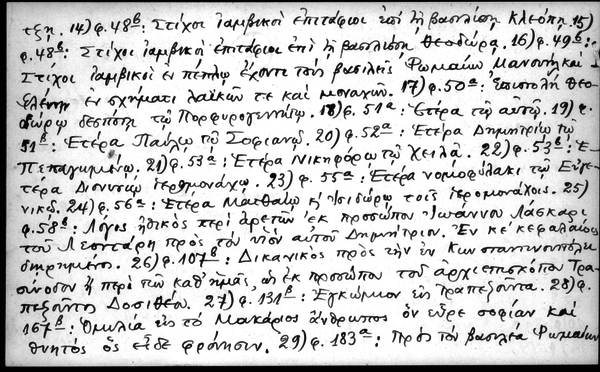 τξη. 14) φ. 48β: Στίχοι ἰαμβικοὶ ἐπιτάφιοι ἐπὶ τῇ βασιλίσσῃ Κλεόπῃ. 15)
φ. 48β: Στίχοι ἰαμβικοὶ ἐπιτάφιοι ἐπὶ τῇ βασιλίσσῃ Θεοδώρᾳ. 16) φ. 49β:
Στίχοι ἰαμβικοὶ ἐν πέπλῳ ἔχοντι τοὺς βασιλεῖς Ῥωμαίων Μανουὴλ καὶ
Ἑλένην ἐν σχήματι λαϊκῶν τε καὶ μοναχῶν. 17) φ. 50α: Ἐπιστολὴ Θεο-
δώρῳ δεσπότῃ τῷ Πορφυρογεννήτῳ. 18) φ. 51α: Ἑτέρα τῷ αὐτῷ. 19) φ.
51β: Ἑτέρα Παύλῳ τῷ Σοφιανῷ. 20) φ. 52α: Ἑτέρα Δημητρίῳ τῷ
Πεπαγωμένῳ. 21) φ. 53α: Ἑτέρα Νικηφόρῳ τῷ Χειλᾷ. 22) φ. 53β: Ἑ-
τέρα Διονυσίῳ ἱερομονάχῳ. 23) φ. 55α: Ἑτέρα νομοφύλακι τῷ Εὐγε-
νικῷ. 24) φ. 56α: Ἑτέρα Ματθαίῳ ἢ Ἰσιδώρῳ τοῖς ἱερομονάχοις. 25)
φ. 58β: Λόγος ἠθικὸς περὶ ἀρετῶν ἐκ προσώπου Ἰωάννου Λάσκαρι
τοῦ Λεοντάρη πρὸς τὸν υἱὸν αὐτοῦ Δημήτριον. Ἐν κε' κεφαλαίοις
διῃρημένος. 26) φ. 107β: Δικανικὸς πρὸς τὴν ἐν Κωνσταντινουπόλει
σύνοδον ἢ περὶ τῶν καθ' ἡμᾶς, ὡς ἐκ προσώπου τοῦ ἀρχιεπισκόπου Τρα-
πεζοῦντος Δοσιθέου. 27) φ. 131β: Ἐγκώμιον εἰς Τραπεζοῦντα. 28) φ.
167β: Ὁμιλία εἰς τὸ Μακάριος ἄνθρωπος ὃν εὗρε σοφίαν καὶ
θνητὸς ὃς εἶδε φρόνησιν. 29) φ. 183α: Πρὸς τὸν βασιλέα Ῥωμαίων